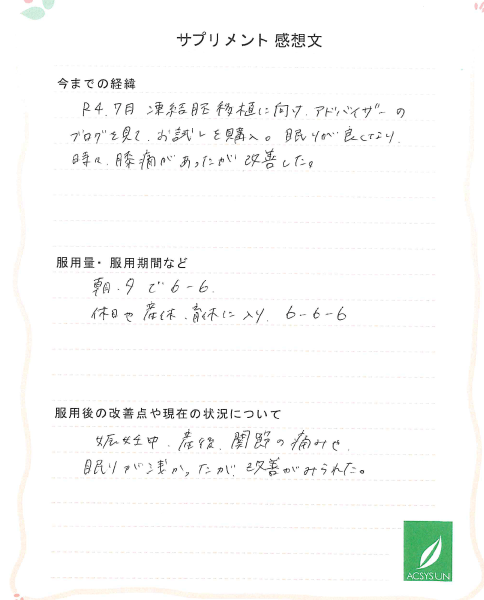 サプリメント 感想文
今までの経緯
R4.7月 凍結胚移植に向け、アドバイザーの
ブログを見て、お試しを購入。眠りが良くなり、
時々、膝痛があったが改善した。
服用量・服用期間など
朝、夕で6-6、
休日や産休、育休に入り、6-6-6
服用後の改善点や現在の状況について
妊娠中、産後、関節の痛みや、
眠りが浅かったが、改善がみられた。
ACSYSUN